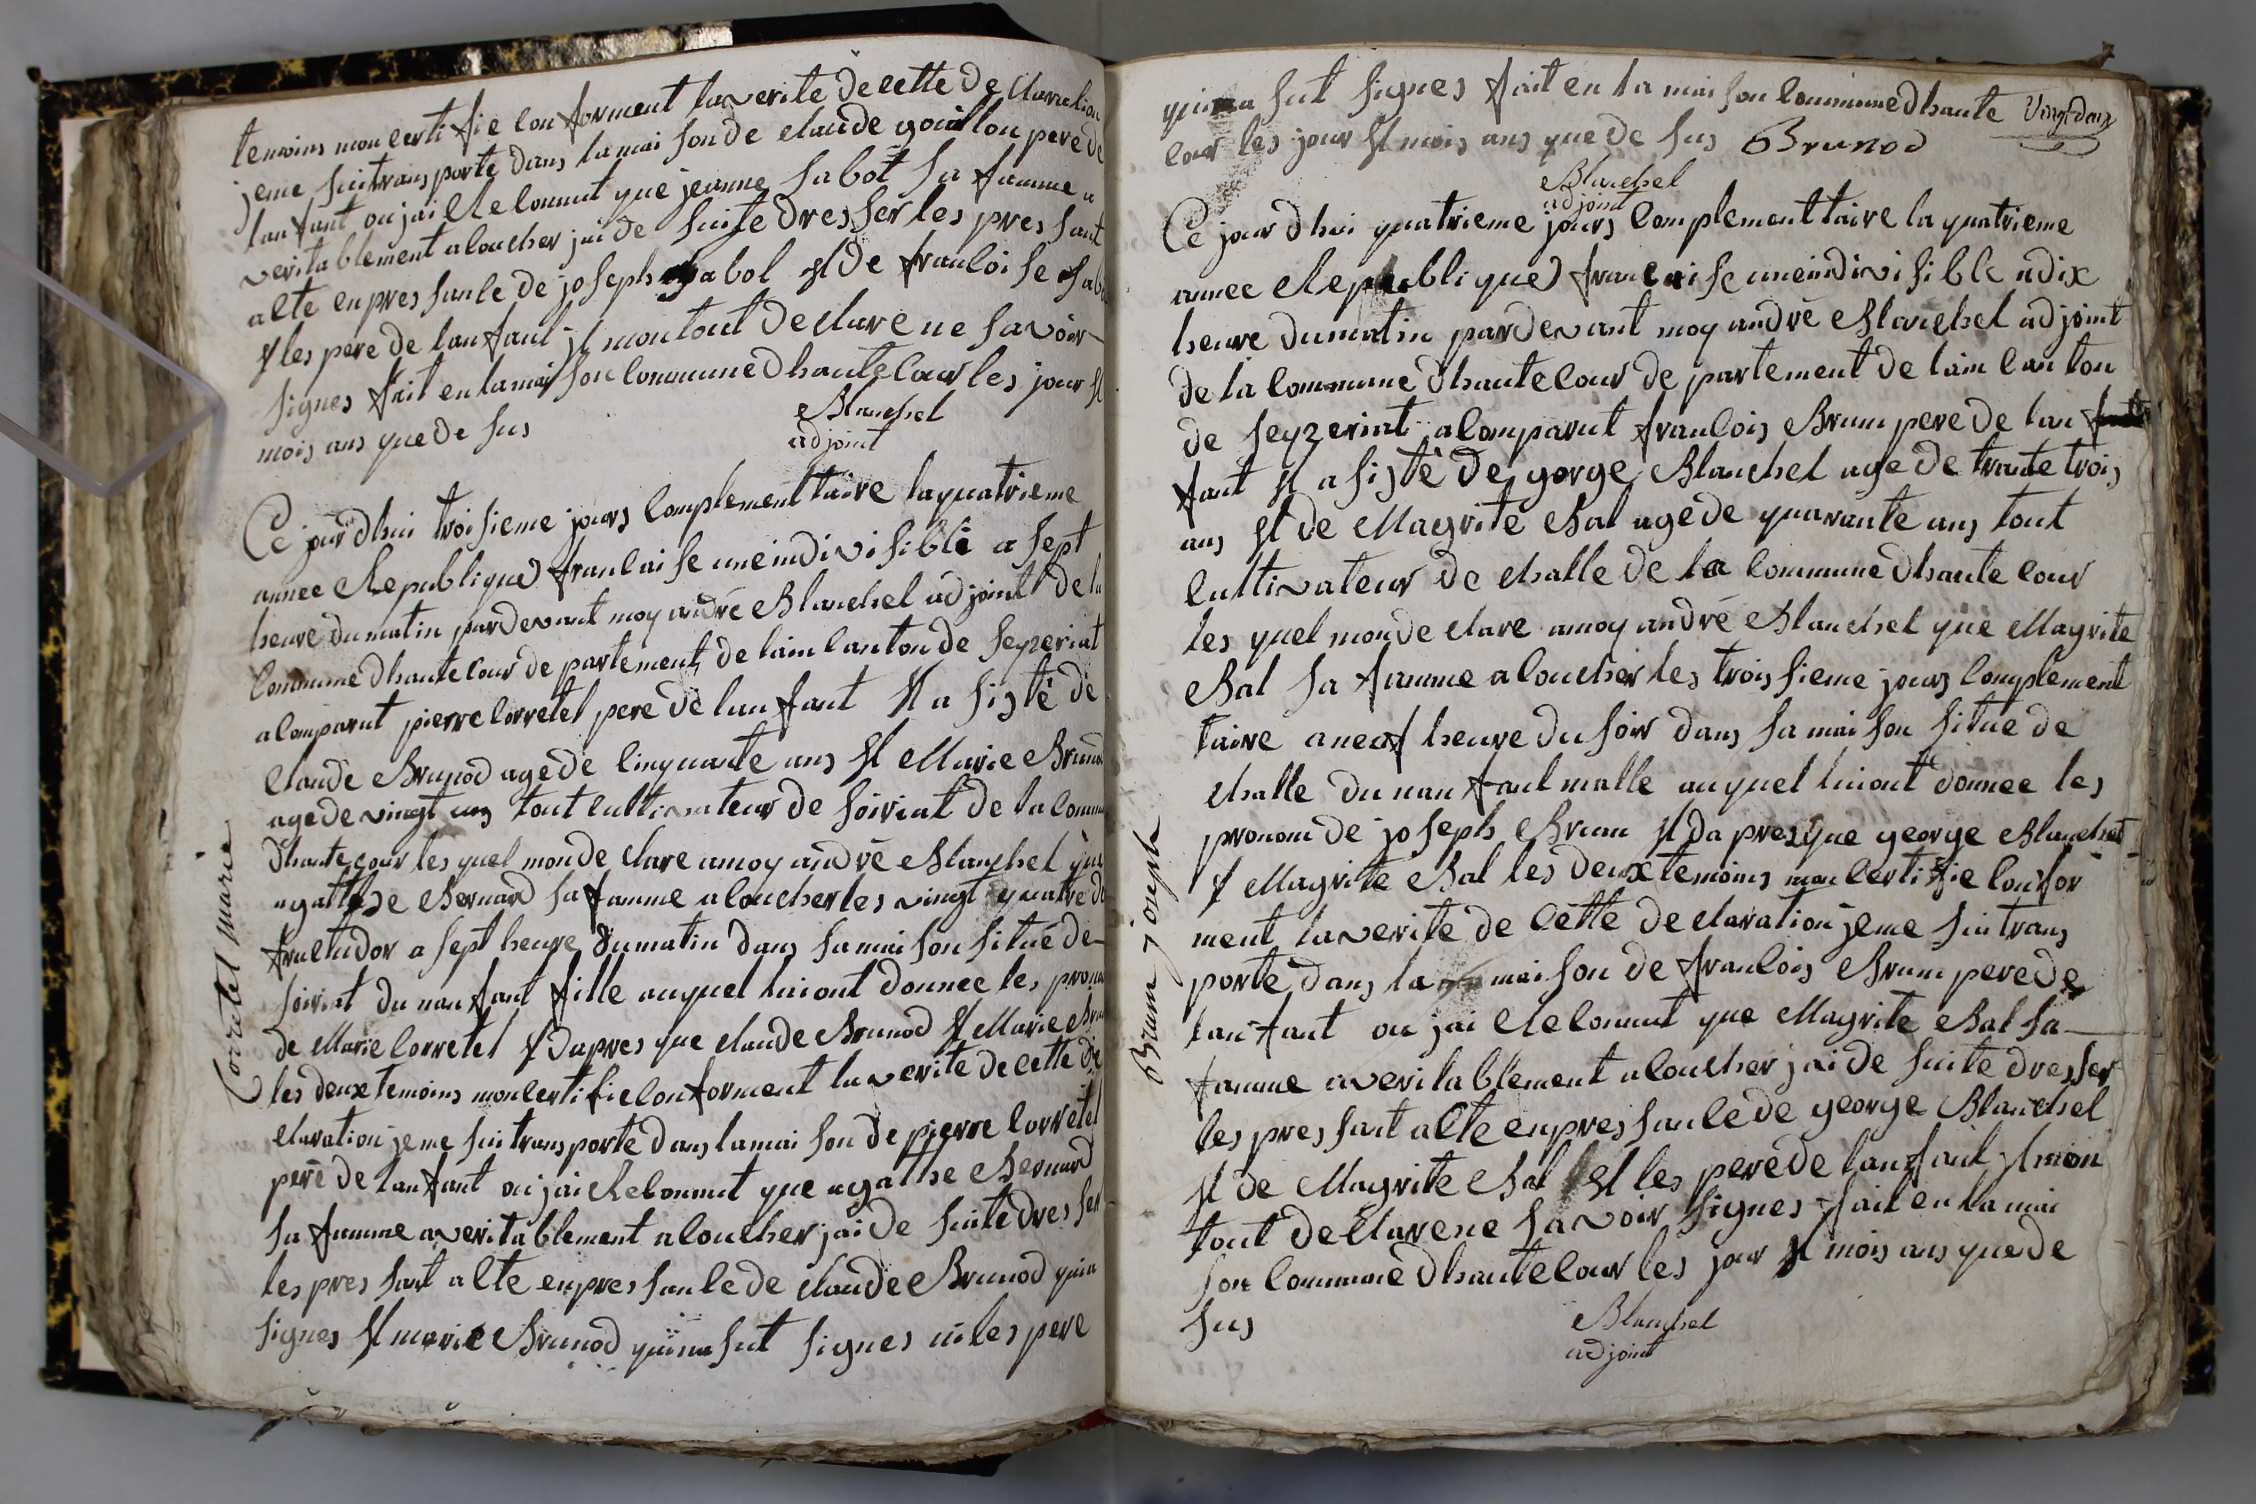 temoins mon certi fie con forment la verite de cette de claration
jeme suitrans porte dans la mai son de claude gouillon pere de
lan fant ou jai Reconnut que jeanne sabot sa famme a
veritablement a coucher jai de suite dresser les pres sant
acte en pres sance de joseph sabot et de francoi se sabo
et les pere de lan fant jl mon tout declare ne savoir
signes fait en la mai son commune dhaute cour les jour et
mois ans que de sus
Blanchet
adjoint
Ce jour dhui troi sieme jours complement taire la quatrieme
annee Republique francai se une indivi sible a sept
heure du matin pardevant moy andré Blanchet adjoint de la
commune dhaute cour de partement de lain canton de seyzeriat
a comparut pierre Corretel pere de lan fant et a sisté de
Claude Brunod age de cinquante ans et Marie Brunod
age de vingt ans tout culti vateur de soiriat de la comm
dhaute cour les quel mon de clare a moy andré Blanchet que
agatthe Bernard sa famme a coucher les vingt quatre de
fructudor a sept heure du matin dans sa mai son situé de
soiriat du nan fant fille auquel lui ont donnee les prono
de Marie Corretel et dapres que claude Brunod et Marie Bru
les deux temoins mon certi fie con forment la verite de cette de
claration je me sui trans porté dans la mai son de pierre Corretel
peré de lan fant ou jai Reconnut que agatthe Bernard
sa famme a veritablement a coucher jai de suite dres ser
les pres sant acte en pres sance de claude Brunod qui a
signes et marie Brunod qui na sut signes ni les pere
Corretel marie
qui na sut signes fait en la mai son commune dhaute
Vingt deux
cour les jour et mois ans que de sus Brunod
Blanchet
adjoint
Ce jour dhui quatrieme jours complement taire la quatrieme
annee Republique francai se une indivi sible a dix
heure du matin pardevant moy andré Blanchet adjoint
de la commune dhaute cour de partement de lain canton
de seyzeriat a comparut francois Brun pere de lan
fant et a sisté de gorge Blanchet age de trante trois
ans et de Magrite Bal age de quarante ans tout
cultivateur de challe de la commune dhaute cour
les quel mon de clare a moy andré Blanchet que Magrite
Bal sa famme a coucher les trois sieme jours complement
taire a neuf heure du soir dans sa mai son situé de
challe du nan fant malle auquel lui ont donnee les
pronom de joseph Brun et da pres que george Blanchet
et Magrite Bal les deux temoins mon certi fie con for
ment la verite de cette de claration jeme sui trans
porte dans la mai son de francois Brun pere de
lan fant ou jai Reconnut que Magrite Bal sa
famme a veritablement a coucher jai de suite dresser
les pres sant acte en pres sance de george Blanchet
et de Magrite Bal et les pere de lan fant jl mon
tout declare ne savoir signes fait en la mai
son commune dhaute cour les jour et mois ans que de
sus
Blanchet
adjoint
Brun joseph